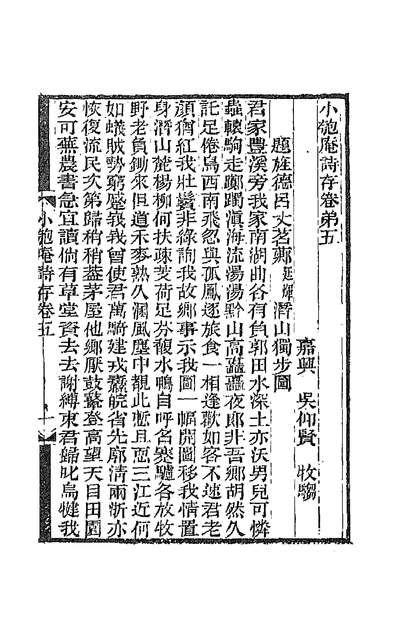 小匏庵詩存卷第五
嘉興 吳仰賢 牧騶
題旌德呂丈茗延輝潛山獨步圖
君家豐溪旁我家南湖曲各有負郭田水深土亦沃男兒可憐
蟲轅駒走躑躅滇海流湯湯黔山高矗矗夜郎非吾鄉胡然久
託足倦鳥西南飛忽與孤鳳逐旅食一相逢歡如客不速君老
顏猶紅我壯鬢非綠詢我故鄉事示我圖一幅開圖移我情置
身潛山麓楊柳何扶疎芰荷足芬馥水鴨自呼名蹇驢各放牧
野老負鋤來但道禾麥熟久溷風塵中覩此慙且恧三江近何
如蟻賊勢窮蹙我我曾使君萬騎建戎纛皖省先廓清兩浙亦
恢復流民次第歸稍稍葢茅屋他鄉厭鼓鼙登高望天目田園
安可蕪農書急宜讀倘有草堂資去去謝縛束君歸叱烏犍我
小匏庵詩存卷五
一